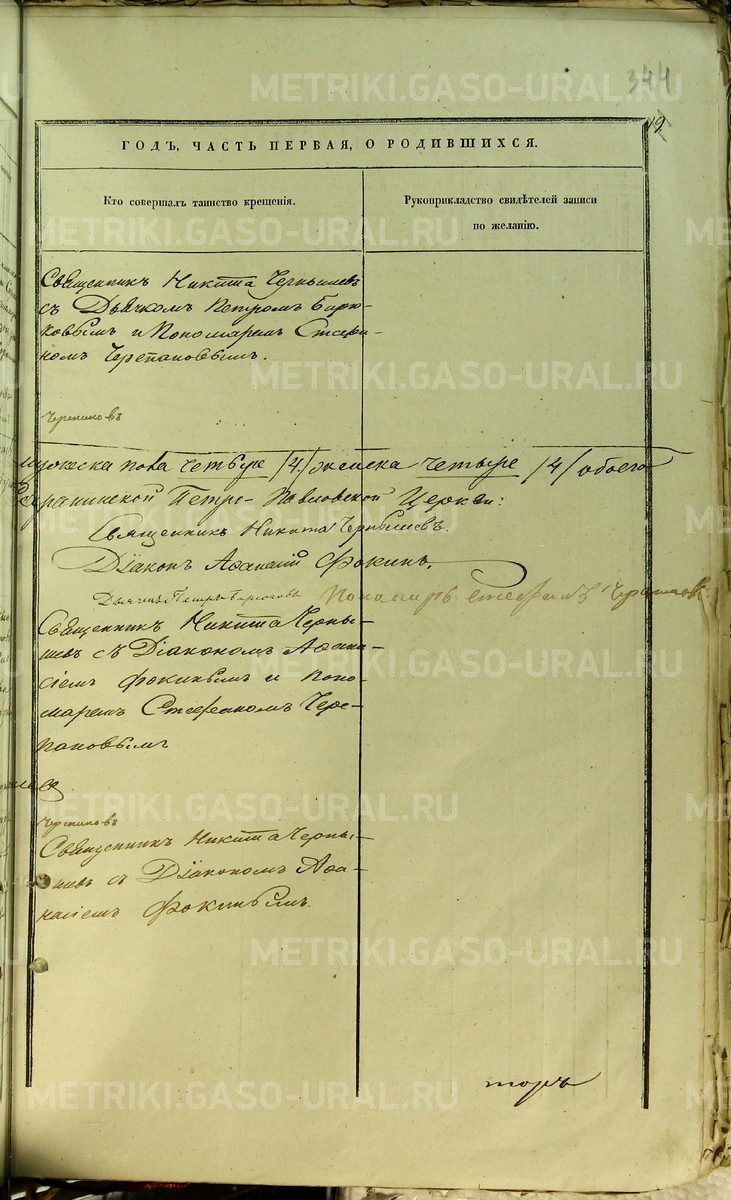 344
19
ГОДЪ, ЧАСТЬ ПЕРВАЯ, О РОДИВШИХСЯ.
Кто совершалъ таинство крещенія.
Рукоприкладство свидѣтелей записи
по желанію.
Священникъ Никита Чернышевъ
съ Дьячкомъ Петромъ Бирю-
ковымъ и Пономаремъ Стефа-
номъ Черепановымъ.
Черепановъ
мужеска пола четыре /4/ женска четыре /4/ обоего
Петро-Павловской Церкви:
Священникъ Никита Чернышевъ.
Діаконъ Аѳанасій Фокинъ.
Дьячекъ Петръ Бирюковъ Пономарь Стефанъ Черепановъ
Священникъ Никита Черны-
шевъ съ Діакономъ Аѳана-
сіемъ Фокинымъ и Поно-
маремъ Стефаномъ Чере-
пановымъ
Черепановъ
Священникъ Никита Черны-
шевъ съ Діакономъ Аѳа-
насіемъ Фокинымъ.
торъ
METRIKI.GASO-URAL.RU